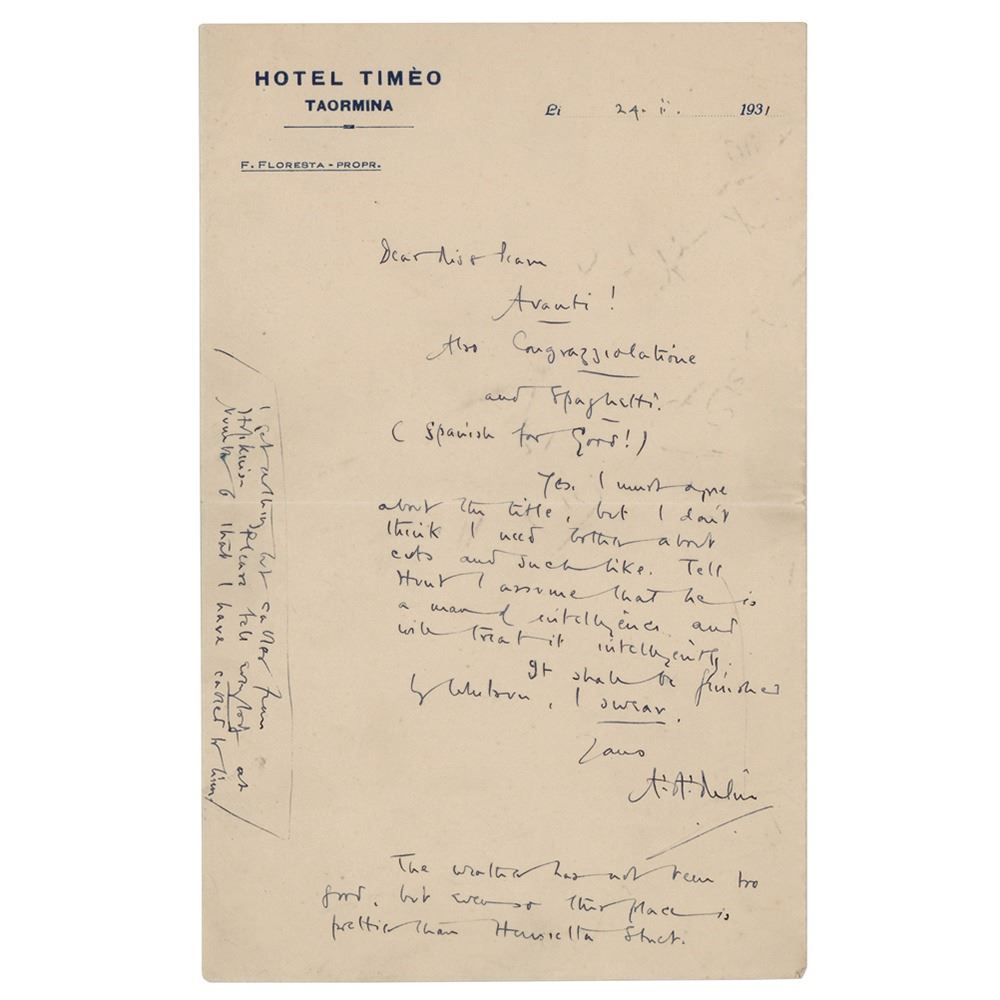 HOTEL TIMÈO
TAORMINA
Li 24. ii. 1931
F. FLORESTA - PROPR.
Dear Miss
Avanti!
Also Congrazziolatione
and Spaghetti.
(Spanish for Good!)
Yes. I must agree
about the title, but I don't
think I need bother about
cuts and such like. Tell
Hunt I assume that he is
a man of intelligence and
will treat it intelligently.
It shall be finished
by Whitsun, I swear.
Yours
A. A. Milne
The weather has not been too
good, but even so this place is
prettier than Henrietta Street.
I get nothing but cables from
please tell everybody at
Number 6 that I have cabled to him